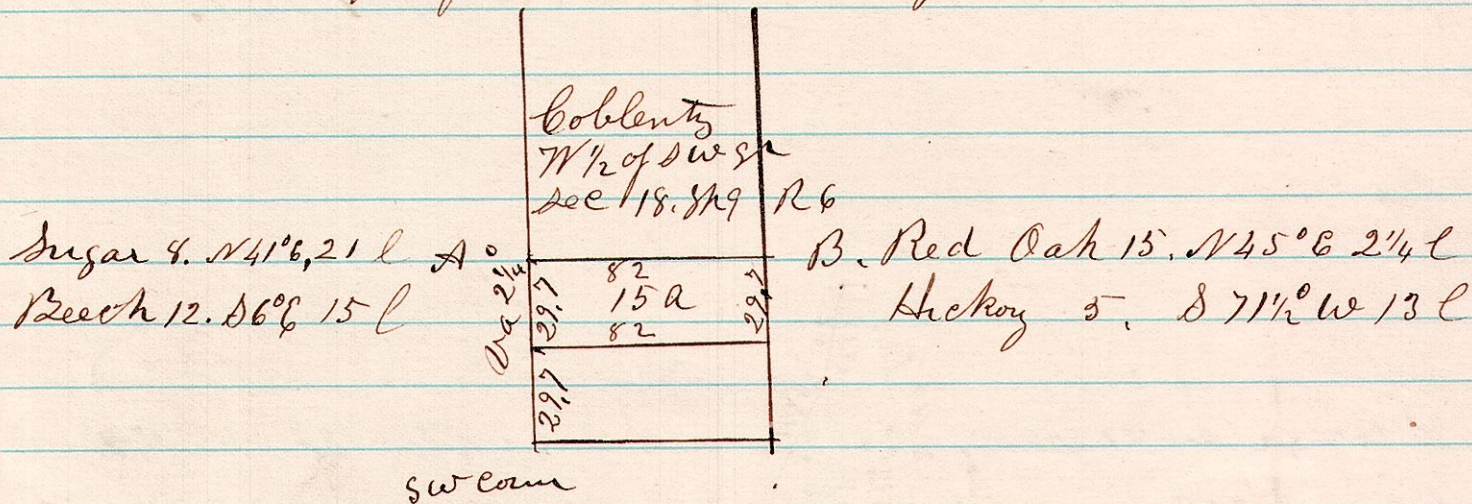 Coblentz
W 1/2 of SW qr
Sec 18. 9 R 6
Sugar 8. N41°E, 21 l A
Beech 12. S6°E 15 l
Va 2 1/4°
29,7 82 29,7
15 a
82
29,7
B. Red Oak 15. N45°E 2 1/4 l
Hickory 5. S 71 1/2° W 13 l
SW corn